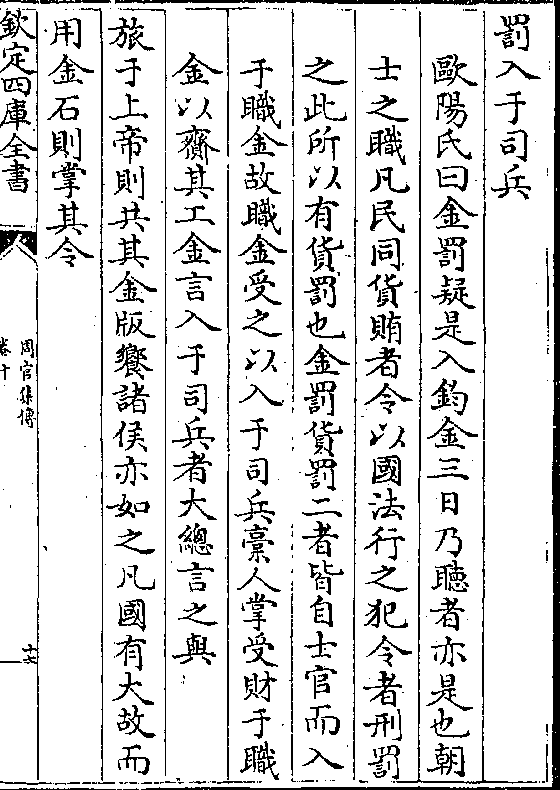 罰入于司兵
歐陽氏曰金罰疑是入鈞金三日乃聽者亦是也朝
士之職凡民同貨賄者令以國法行之犯令者刑罰
之此所以有貨罰也金罰貨罰二者皆自士官而入
于職金故職金受之以入于司兵槀人掌受財于職
金以齎其工金言入于司兵者大總言之與
旅于上帝則共其金版饗諸侯亦如之凡國有大故而
用金石則掌其令
欽定四庫全書
周官集傳
卷十
十七